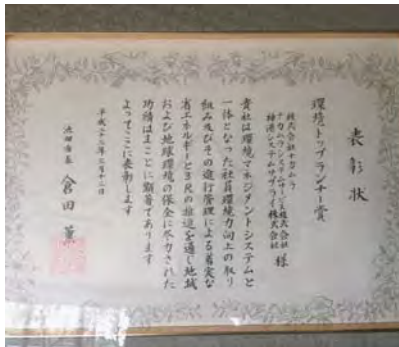 表彰状
環境トップランナー賞
株式会社ナカムラ
ナカムラシステムサービス株式会社
神港システムサプライ株式会社
様
貴社は環境マネジメントシステムと
一体となった社員環境力向上の取り
組み及びその進行管理による着実な
省エネルギーと3Rの推進を通し地域
および地球環境の保全に尽力された
功績はまことに顕著であります
よってここに表彰します
平成二十二年二月十二日
池田市長 倉田薫